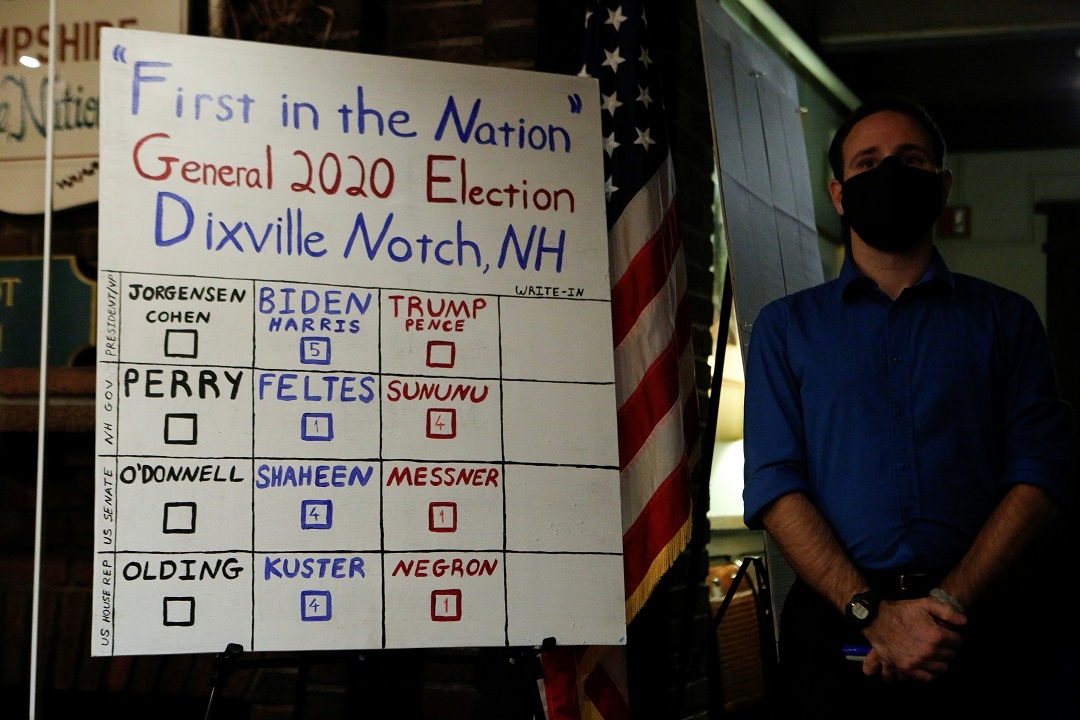 MPSHIRE
e Natio
"First in the Nation"
General 2020 Election
Dixville Notch, NH
WRITE-IN
PRESIDENT/VP
JORGENSEN
COHEN
BIDEN
HARRIS
5
TRUMP
PENCE
NH GOV.
PERRY
FELTES
1
SUNUNU
4
US SENATE
O'DONNELL
SHAHEEN
4
MESSNER
1
US HOUSE REP
OLDING
KUSTER
4
NEGRON
1